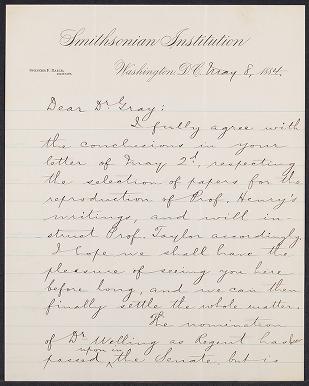 Smithsonian Institution
Spencer F. Baird,
Washington, D.C. May 8, 1884.
Dear Dr Gray:
I fully agree with
the conclusions in your
letter of May 2d, respecting
the selection of papers for the
reproduction of Prof. Henry's
writings, and will in-
struct Prof. Taylor accordingly.
I hope we shall have the
pleasure of seeing you here
before long, and we can then
finally settle the whole matter.
The nomination
of Dr Welling as Regent has
upon in
passed the Senate, but is